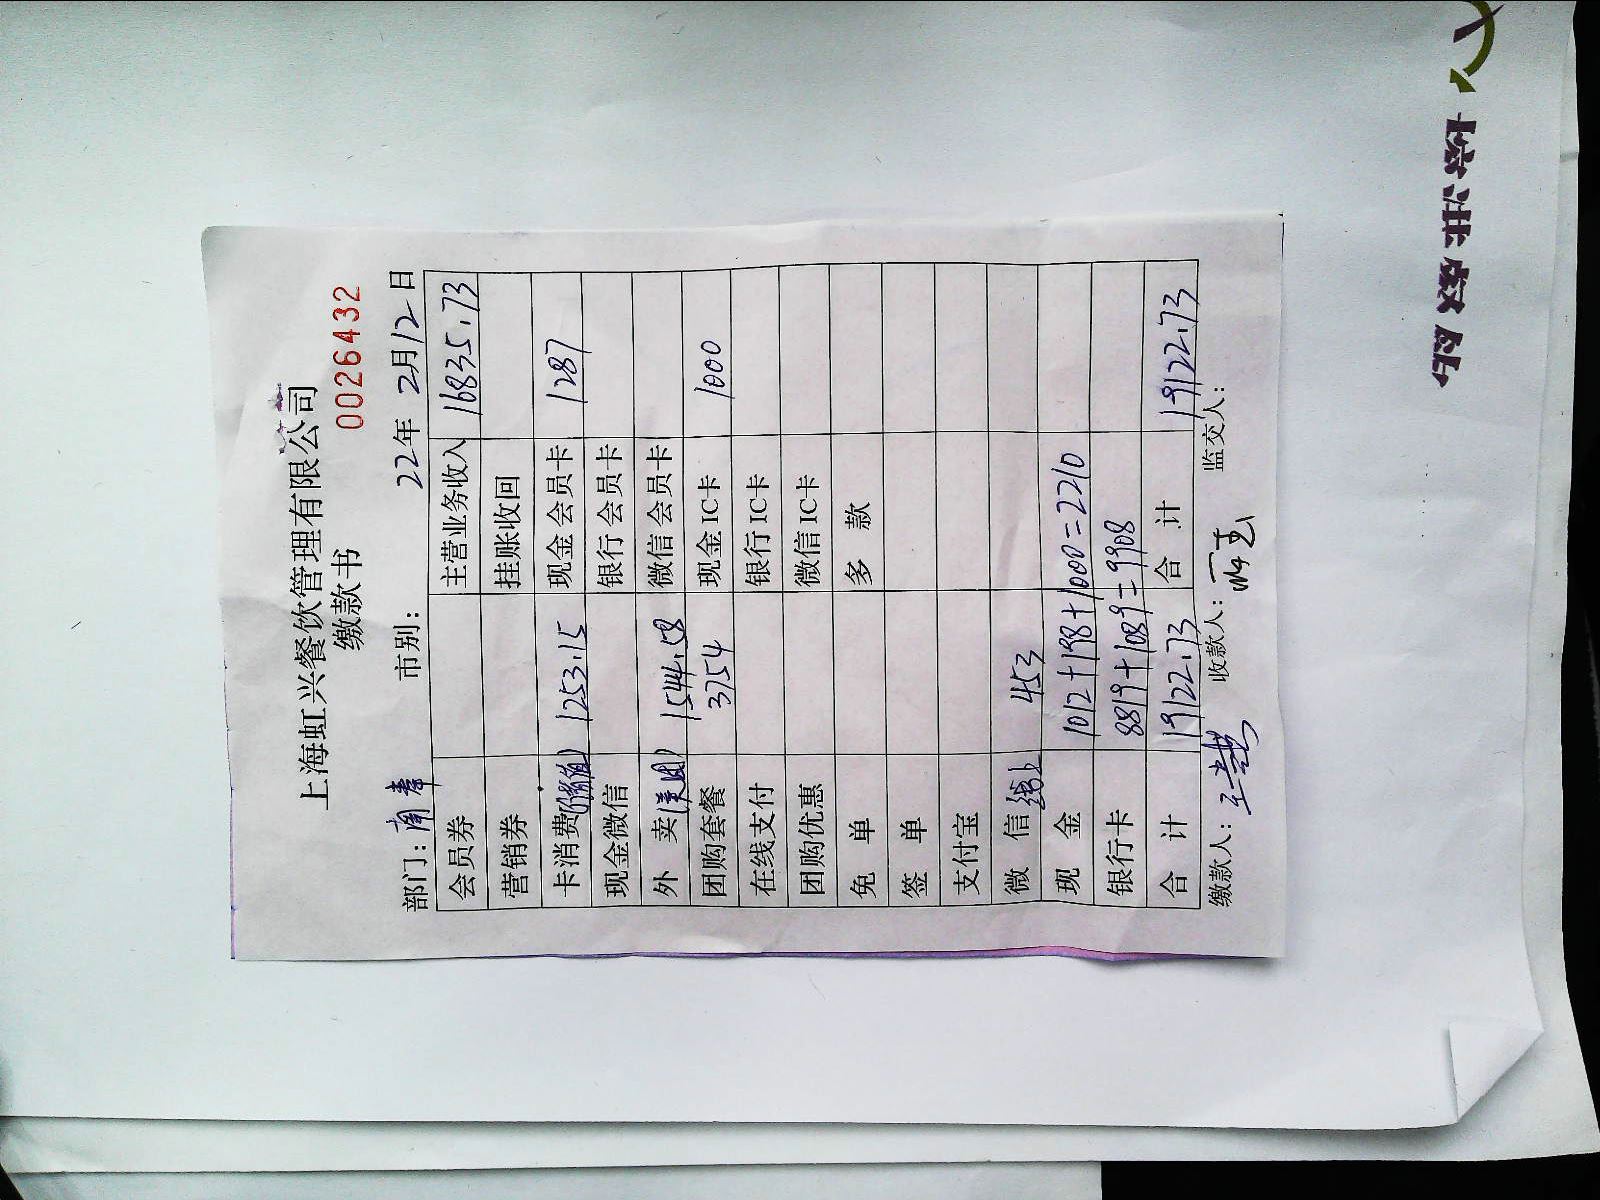 上海虹兴餐饮管理有限公司
缴款书
0026432
部门: 市别: 22年 2月12日
会员券 主营业务收入 16835.73
营销券 挂账收回
卡消费 1253.15 现金会员卡 1287
现金微信 银行会员卡
外 卖(美团) 1544.58 微信会员卡
团购套餐 3754 现金IC卡 1000
在线支付 银行IC卡
团购优惠 微信IC卡
免 单 多 款
签 单
支付宝
微 信 线上 453
现 金 1012+198+1000=2210
银行卡 8819+1089=9908
合 计 19122.73 合 计 19122.73
缴款人: 收款人: 监交人: